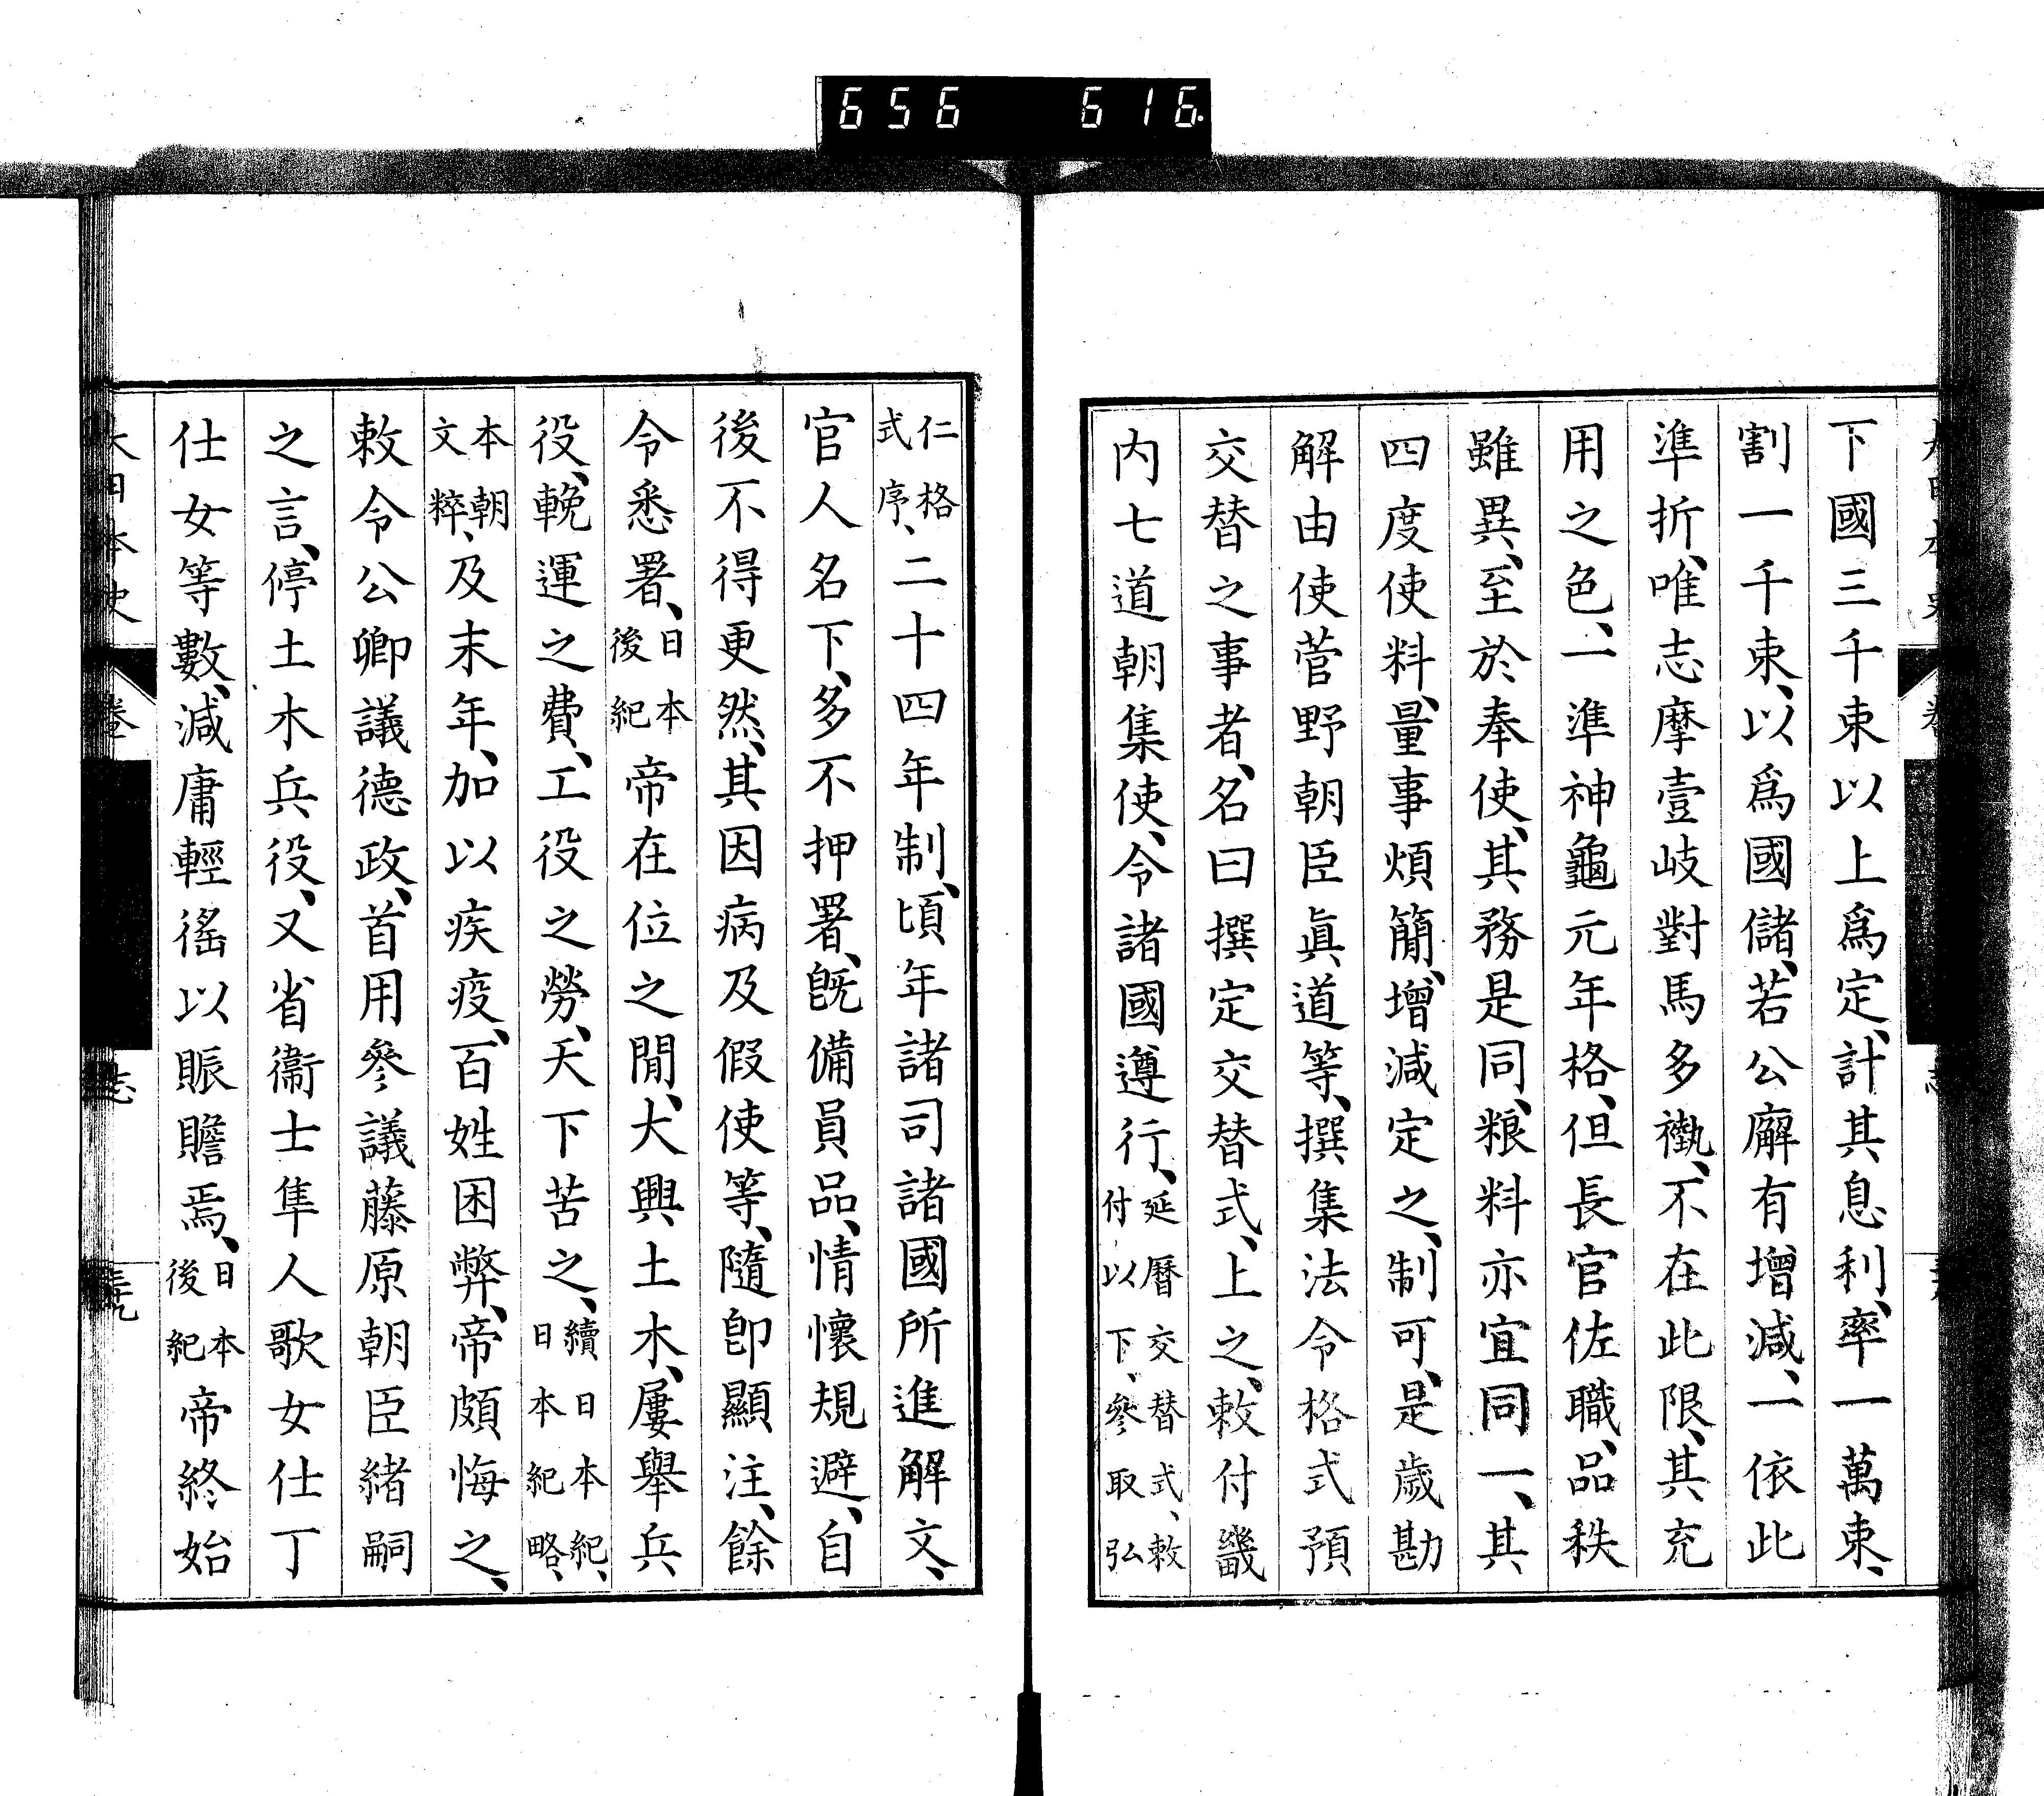 656 616
下國三千束以上爲定、計其息利、率一萬束、
割一千束、以爲國儲、若公廨有增減、一依此
準折、唯志摩壹岐對馬多褹、不在此限、其充
用之色、一準神龜元年格、但長官佐職、品秩
雖異、至於奉使、其務是同、粮料亦宜同一、其
四度使料、量事煩簡、增減定之、制可、是歲勘
解由使菅野朝臣眞道等、撰集法令格式預
交替之事者、名曰撰定交替式、上之、敕付畿
内七道朝集使、令諸國遵行、延曆交替式、敕付以下、參取弘
仁格式序、二十四年制、頃年諸司諸國所進解文、
官人名下、多不押署、旣備員品、情懷規避、自
後不得更然、其因病及假使等、隨卽顯注、餘
令悉署、日本後紀帝在位之閒、大興土木、屢舉兵
役、輓運之費、工役之勞、天下苦之、續日本紀、日本紀略、
本朝文粹、及末年、加以疾疫、百姓困弊、帝頗悔之、
敕令公卿議德政、首用參議藤原朝臣緒嗣
之言、停土木兵役、又省衞士隼人歌女仕丁
仕女等數、減庸輕徭以賑贍焉、日本後紀帝終始
大日本史 卷 志 三九